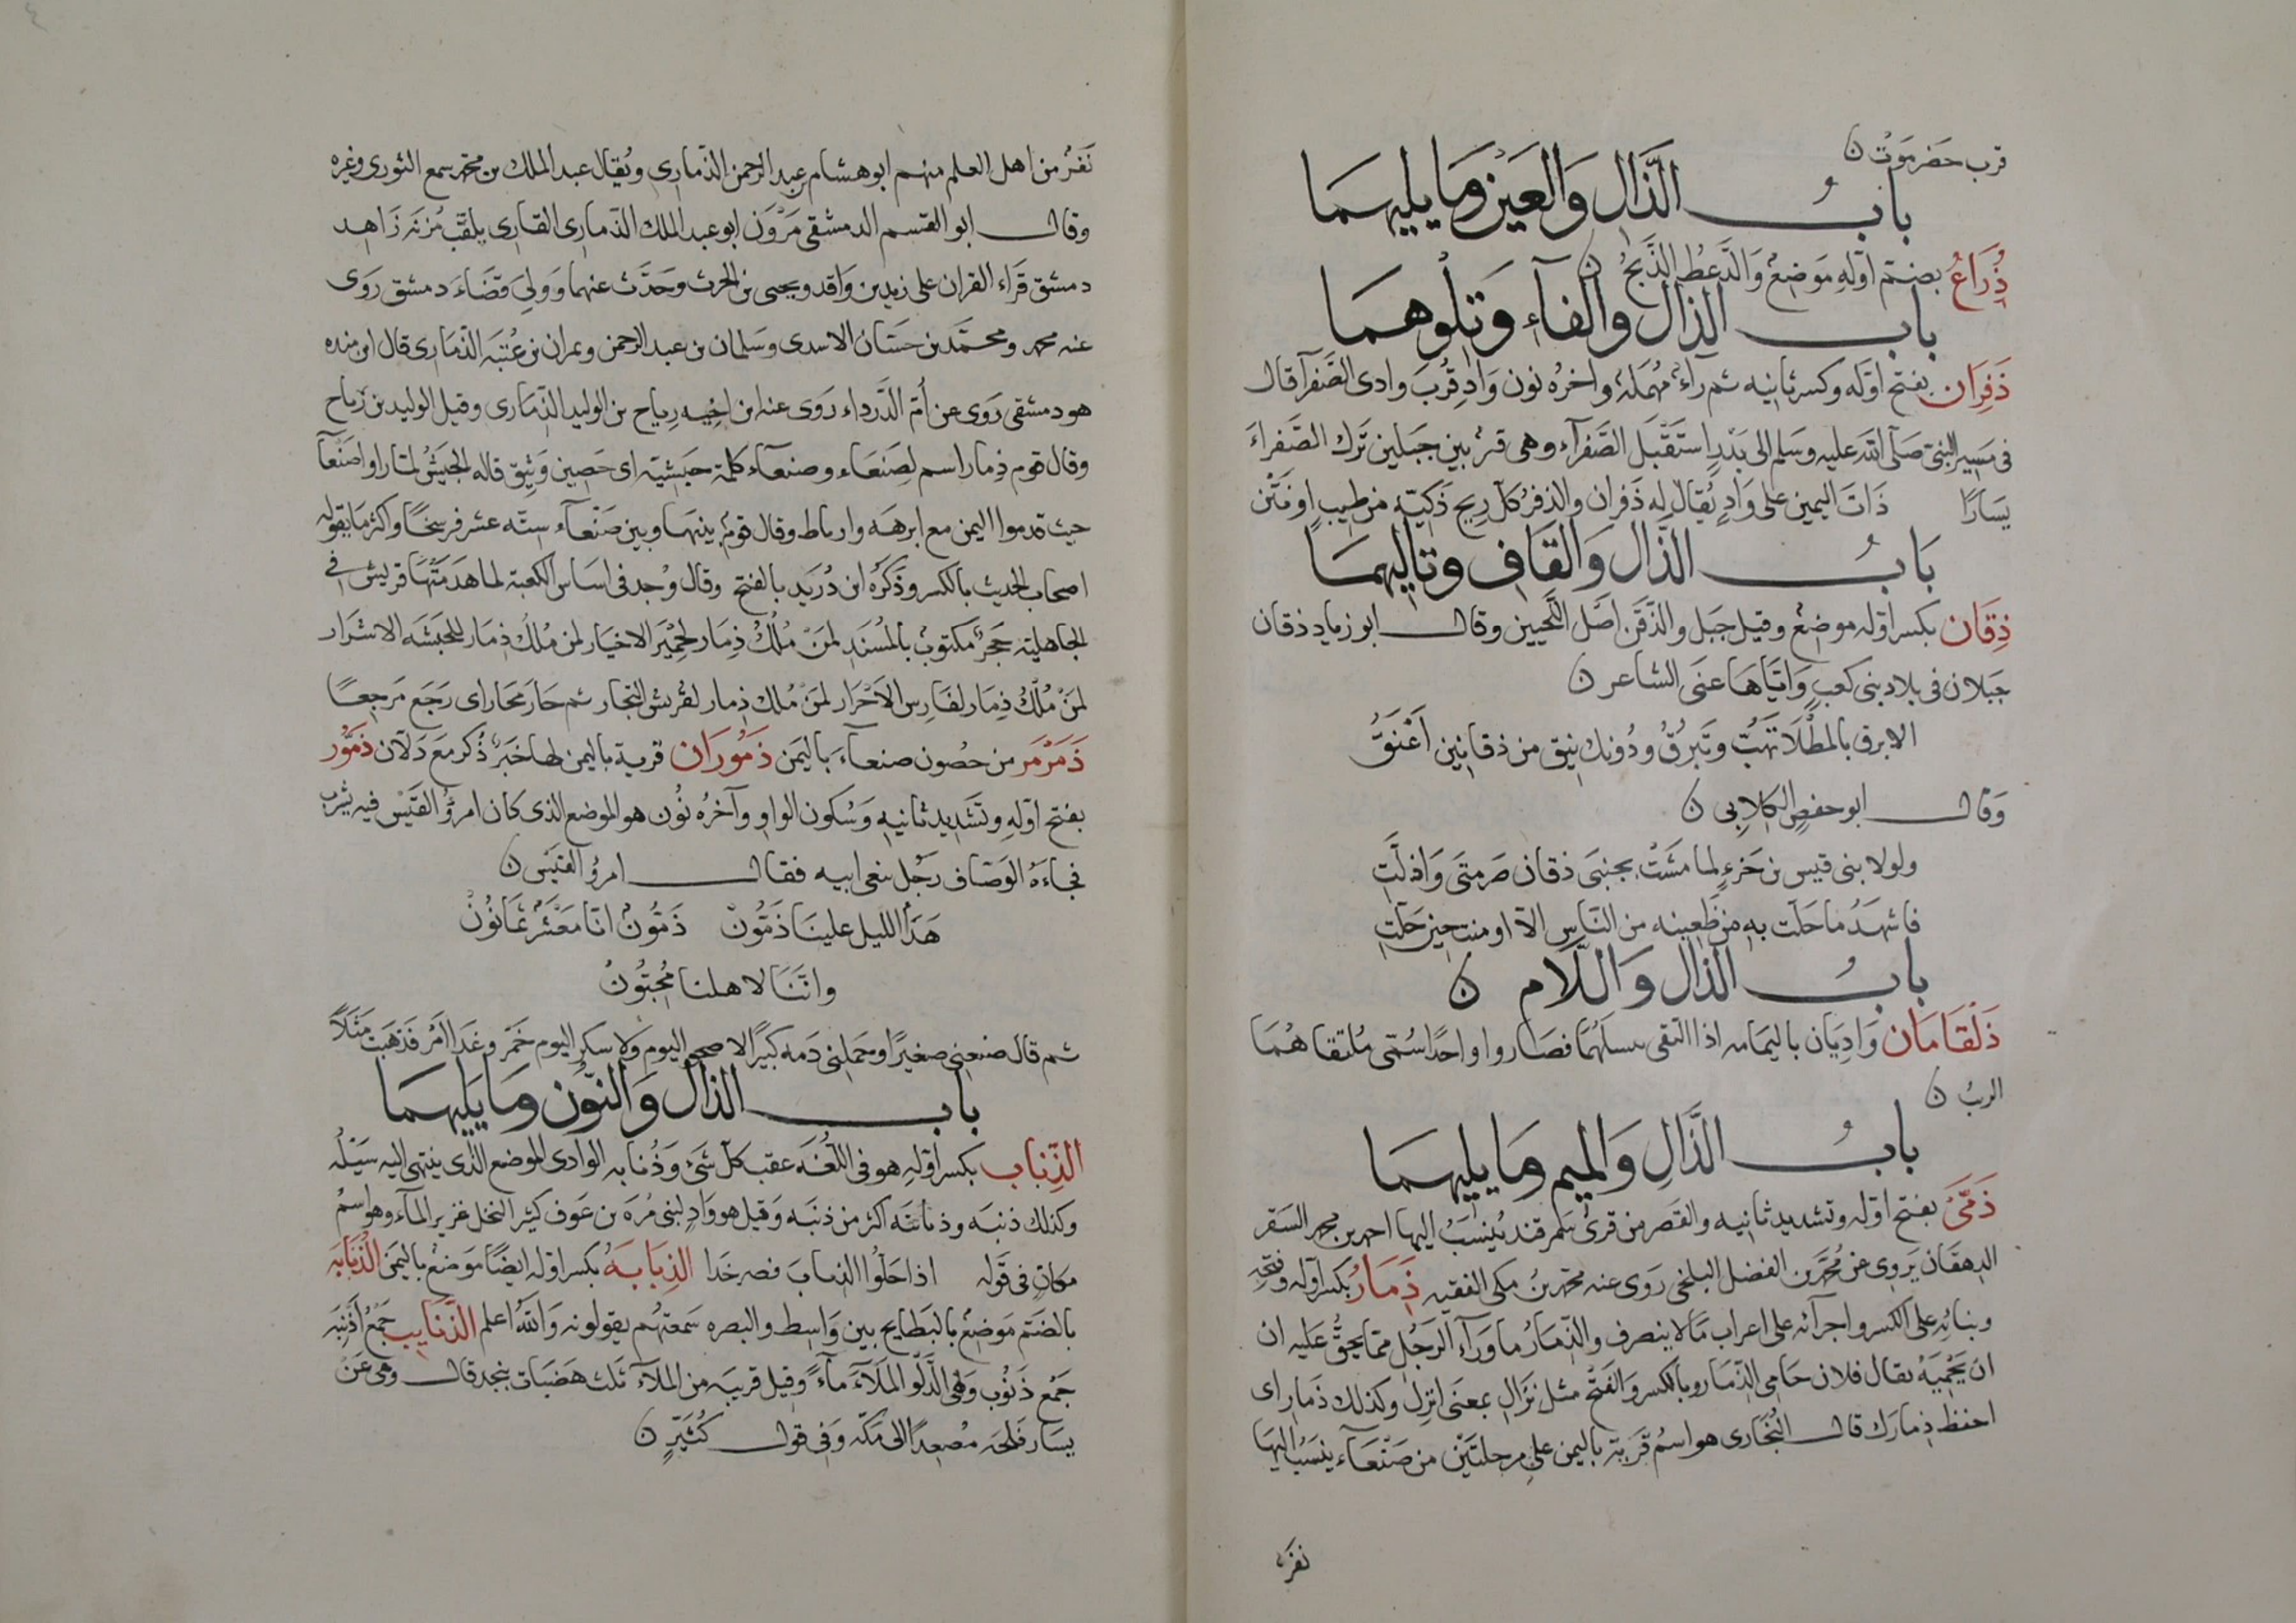 قرب حضرموت ن
بابُ الذَّال وَالعَيْن وَمَا يليهمَا
ذُرَاعُ بضم اوّله مَوضعٌ وَالذَّعطُ الذَّبحُ ن
باب الذال والفآء وَتِلْوهمَا
ذَفِرَان بفتح اوّله وكسر ثانيه ثم رآءٌ مُهمَلةٌ واخرُه نون وَادٍ قُربَ وادى الصَّفرآ قال
فى مَسِير النبىّ صَلَّى الله عليه وسَلم الى بَدْرٍ استَقْبَل الصَّفرآء وهى قرْ بين جَبلين تَرَك الصَّفراءَ
يسَارًا ذَاتَ اليمين على وَادٍ يُقالُ له ذَفران والذفرُ كلّ رِيحٍ ذَكيّةٍ من طِيبٍ او نَتْن
بَابُ الذَّال وَالقَافِ وتالِيهمَا
ذِقَان بكسر اوّله موضعٌ وقيل جَبل والذَّقَن اصَل اللَّحيين وقال ابو زياد ذقان
جبلان فى بلاد بنى كعبٍ وَايّاهَا عنَى الشاعر ن
الا برق بالمطْلَا تَهُبُّ وتَبرُقُ ودُونك نيق من ذقانين اَعْنَقُ
وَقال ابو حفصٍ الكلابِى ن
ولولا بنى قيس بن جَزءٍ لما مشَتْ بجنبَى ذقان صَرمتَى وَاذلَّتِ
فاشهَدُ ما حَلّت به من ظَعِينه من النَّاس الاّ اومنت حين حَلّتِ
بابُ الذال وَاللّام ن
ذَلْقَامَان وَادِيَان باليمَامه اذا التقى سيلهُمَا فصَاروا واحدًا سُمّى مُلتقاهُمَا
الربُ ن
بابُ الذَّالِ وَالميم وما يليهمَا
ذَمَّىٰ بفتح اوّله وتشديد ثانيه والقصَر من قرىٰ سَمرقند يُنسَبُ اليها احمد بن محمد السَقر
الدهقَان يَروِى عن مُحمّد بن الفضل البلخى رَوى عنه محمّد بنُ مكى الفقيه ذِمَارُ بكسر اوّله وفتحِه
وبنَائهِ على الكسر واجرآئه على اعراب مَا لا ينصرف والذّمَارُ ما وَرَآء الرَّجُل ممّا يحقُّ عَليه ان
ان يَحْمِيَهُ يقال فلان حَامِى الذّمَار وبالكسر وَالفَتْح مثل نَزَالِ بمعنَى انزِل وكذلك ذَمَارِ اى
احفظ ذِمارَك قال البُخَارى هو اسمُ قرَية باليمن على مرحلتَيْن من صَنْعَآء ينسَبُ اليهَا
نفرٌ
نَفَرٌ من اهل العلم منهم ابو هشام عبد الرحمن الذّمارى ويُقال عبد الملك بن محمّد سمع الثورى وغيره
وقال ابو القسم الدمشقى مَرْوَن ابو عبد الملك الذّمارى القارى يلقّب مُزنَه زَاهد
دمشق قَرَاء القران على زيد بن وَاقد ويحيى بن الحرث وحَدَّث عنهما وَوَلِىَ قَضَاءَ دمشق رَوَى
عنه محمد ومحمّد بن حَسّان الاسدى وسَلمان بن عبد الرحمن وعمران بن عُتبَه الذّمَارى قال ابن منده
هو دمشقى رَوى عن اُمّ الدَّرداء رَوى عنه ابن اخِيه رِياح بن الوليد الذّمَارى وقيل الوليد بن رباح
وقال قوم ذِمار اسم لِصَنعَاء وصنعآء كلمة حبَشيّة اى حَصِين وَثِيق قاله الجَيشُ لمّا راوا صَنْعآ
حيث قدموا اليمن مع ابرهَه وارياط وقال قومٌ بينهما وبين صَنْعآء ستّه عشر فرسخًا واكثر مَا يقوله
اصحابُ الحديث بالكسر وذَكَرَه ابن دُرَيد بالفتح وقال وُجد فى اسَاس الكعبة لما هَدمَتْهَا قريش فى
الجاهليّة حَجَرٌ مكتوبٌ بالمُسنَد لمَنْ مُلْكُ ذِمَار لِحِمْيَر الاخيَار لمن مُلكُ ذِمَار للحبَشَه الاشرَار
لمَنْ مُلْكُ ذِمَار لفَارِس الاَحْرَار لمَنْ مُلك ذِمار لقُريش التّجار ثم حَارَ مَحَار اى رَجَع مَرجِعًا
ذَمَرْمَر من حصُون صنعآءَ باليَمن ذَمُورَان قرية باليمن لها خَبرٌ ذُكر مَع دَلّان ذَمُّوْر
بفتح اوّله وتشَديد ثانيه وَسُكون الواو وآخرُه نُون هو الموضع الذى كان امرؤُ القيْس فيه يشرب
فجاءَهُ الوَصّاف رَجُل بنعى ابيه فقال امرؤ القَيْس ن
هَدَا الليل علينا ذَمُّونْ ذَمّونُ انّا مَعْشَرٌ يمَانُونْ
وانّنَا لاهلنا مُحِبُّونْ
ثم قال ضيعنِى صغيرًا وحَملنى دَمه كبيرًا لا صحو اليوم وَلا سكر اليوم خَمْر وغَدًا امْر فَذهبَت مَثَلاً
باب الذال وَالنّون وما يليهمَا
الذِّنَاب بكسر اوّلهِ هو فى اللّغَه عقب كلّ شئ وَذُنابه الوادى الموضع الذّى ينتهى اليه سَيْلُه
وكذلك ذنبَه وذنابتَه اكثر من ذنبَه وَقيل هو وَادٍ لبنى مُرَّه بن عَوف كثير النخل غزير المآء وهو اسمُ
مكانٍ فى قوله اذا حَلُّوا الذنابَ فصرخَدا الذِّنَابَهُ بكسر اوّله ايضًا مَوضعٌ باليمَن الذُّنَابَه
بالضَم مَوضِعٌ بالبَطايح بين وَاسِط والبصره سَمعتُهم يقولونه وَاللهُ اعلم الذَّنَايِب جَمعُ اَذْنِبَه
جَمع ذَنُوبٍ وهى الدَّلو المَلآءَ مآءً وقيل قريبَه من المَلآء ثلث هَضَبات بنجد قال وهى عَنْ
يسَار فَلجَه مُصعِدًا الى مَكّه وَفى قول كُثَيّرٍ ن